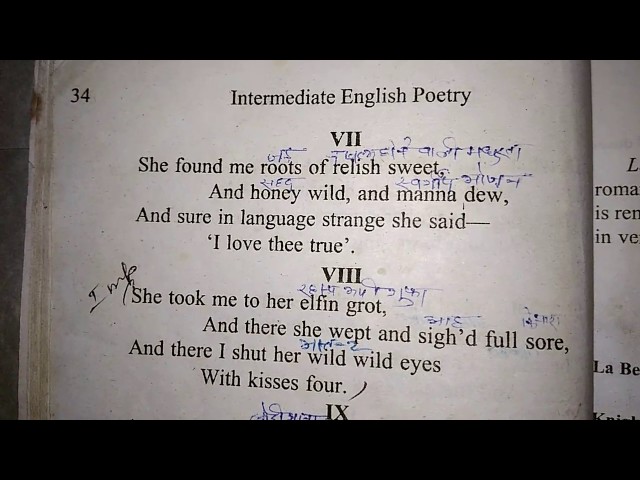 34 Intermediate English Poetry
VII
जड़
She found me roots of relish sweet,
शहद
And honey wild, and manna dew,
And sure in language strange she said—
‘I love thee true’.
VIII
She took me to her elfin grot,
आह
And there she wept and sigh’d full sore,
And there I shut her wild wild eyes
With kisses four.
IX
L
roma
is ren
in ve
La Be
Knigh